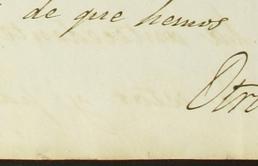 de que hemos
Otro